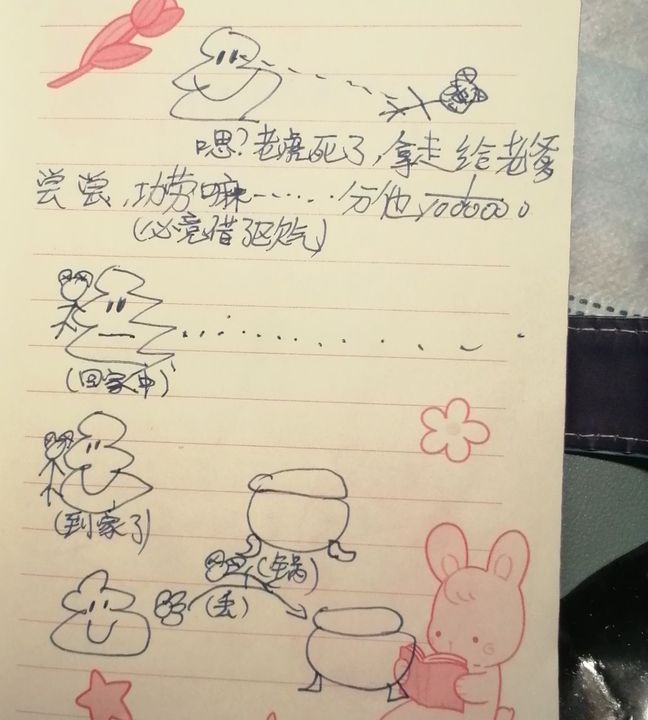 嗯?老虎死了,拿走给老爹
尝尝,功劳嘛……分他1/1000000
(必竟借
(回家中)
(到家了)
锅)
(丢)